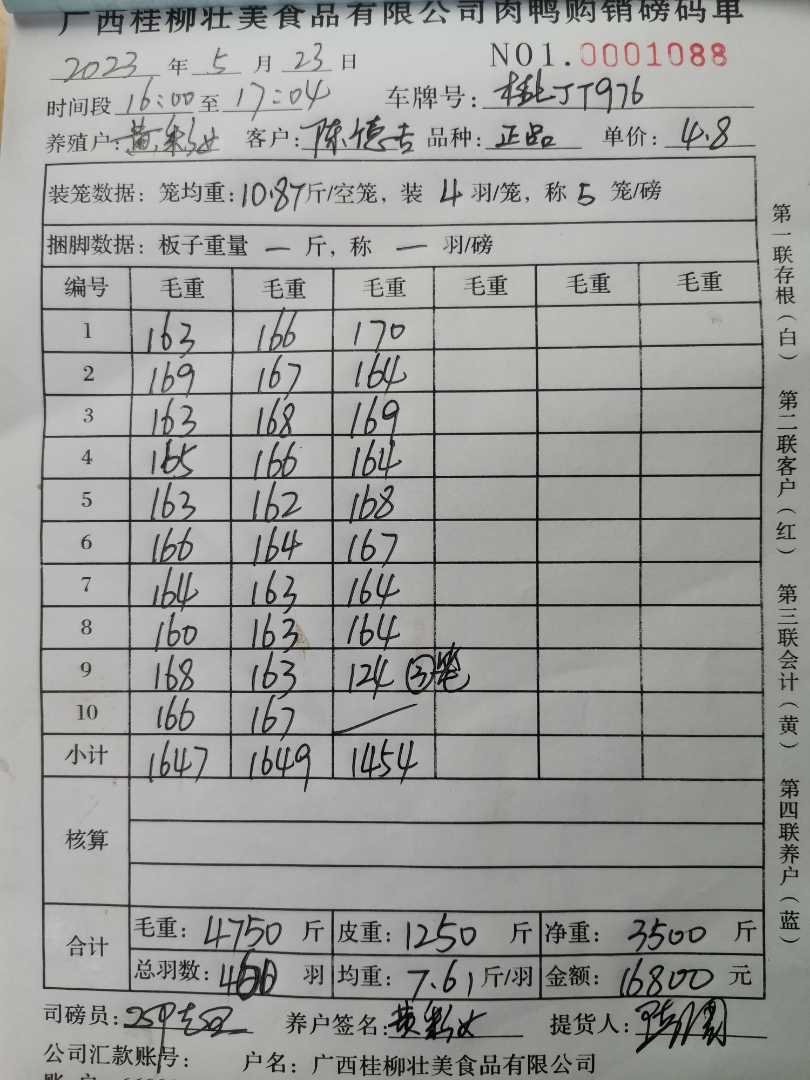 广西桂柳壮美食品有限公司肉鸭购销磅码单
2023 年 5 月 23 日 NO1.0001088
时间段 16:00 至 17:04 车牌号: 桂JT976
养殖户: 黄彩女 客户: 陈德吉 品种: 正品 单价: 4.8
装笼数据: 笼均重: 10.87 斤/空笼, 装 4 羽/笼, 称 5 笼/磅
捆脚数据: 板子重量 一 斤, 称 一 羽/磅
编号 毛重 毛重 毛重 毛重 毛重 毛重
1 163 166 170
2 169 167 164
3 163 168 169
4 165 166 164
5 163 162 168
6 166 164 167
7 164 163 164
8 160 163 164
9 168 163 124 ③笼
10 166 167
小计 1647 1649 1454
核算
合计 毛重: 4750 斤 皮重: 1250 斤 净重: 3500 斤
总羽数: 460 羽 均重: 7.61 斤/羽 金额: 16800 元
司磅员: 养户签名: 黄彩女 提货人:
公司汇款账号: 户名: 广西桂柳壮美食品有限公司
第一联存根(白) 第二联客户(红) 第三联会计(黄) 第四联养户(蓝)